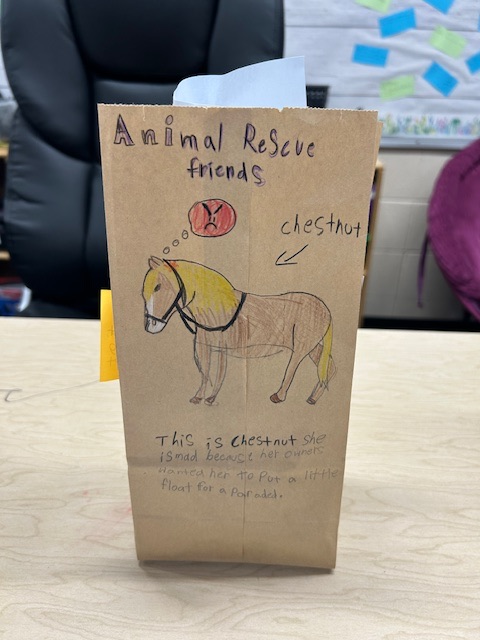 Animal Rescue
friends
chestnut
This is chestnut she
is mad because her owner
wanted her to Put a little
float for a Parade.